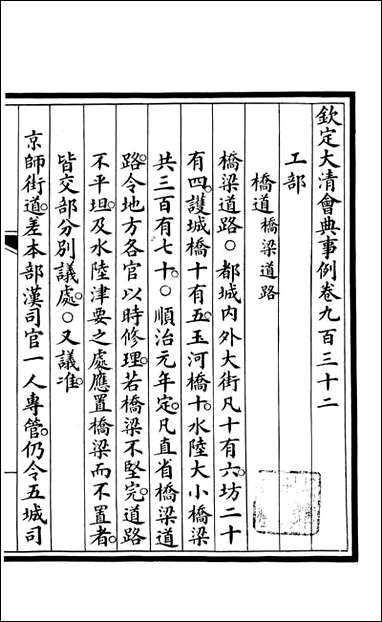 欽定大清會典事例卷九百三十二
工部
橋道橋梁道路
橋梁道路○都城內外大街凡十有六。坊二十
有四。護城橋十有五。玉河橋十。水陸大小橋梁
共三百有七十。○順治元年定。凡直省橋梁道
路。令地方各官以時修理。若橋梁不堅完。道路
不平坦。及水陸津要之處應置橋梁而不置者。
皆交部分別議處。○又議准。
京師街道。差本部漢司官一人專管。仍令五城司